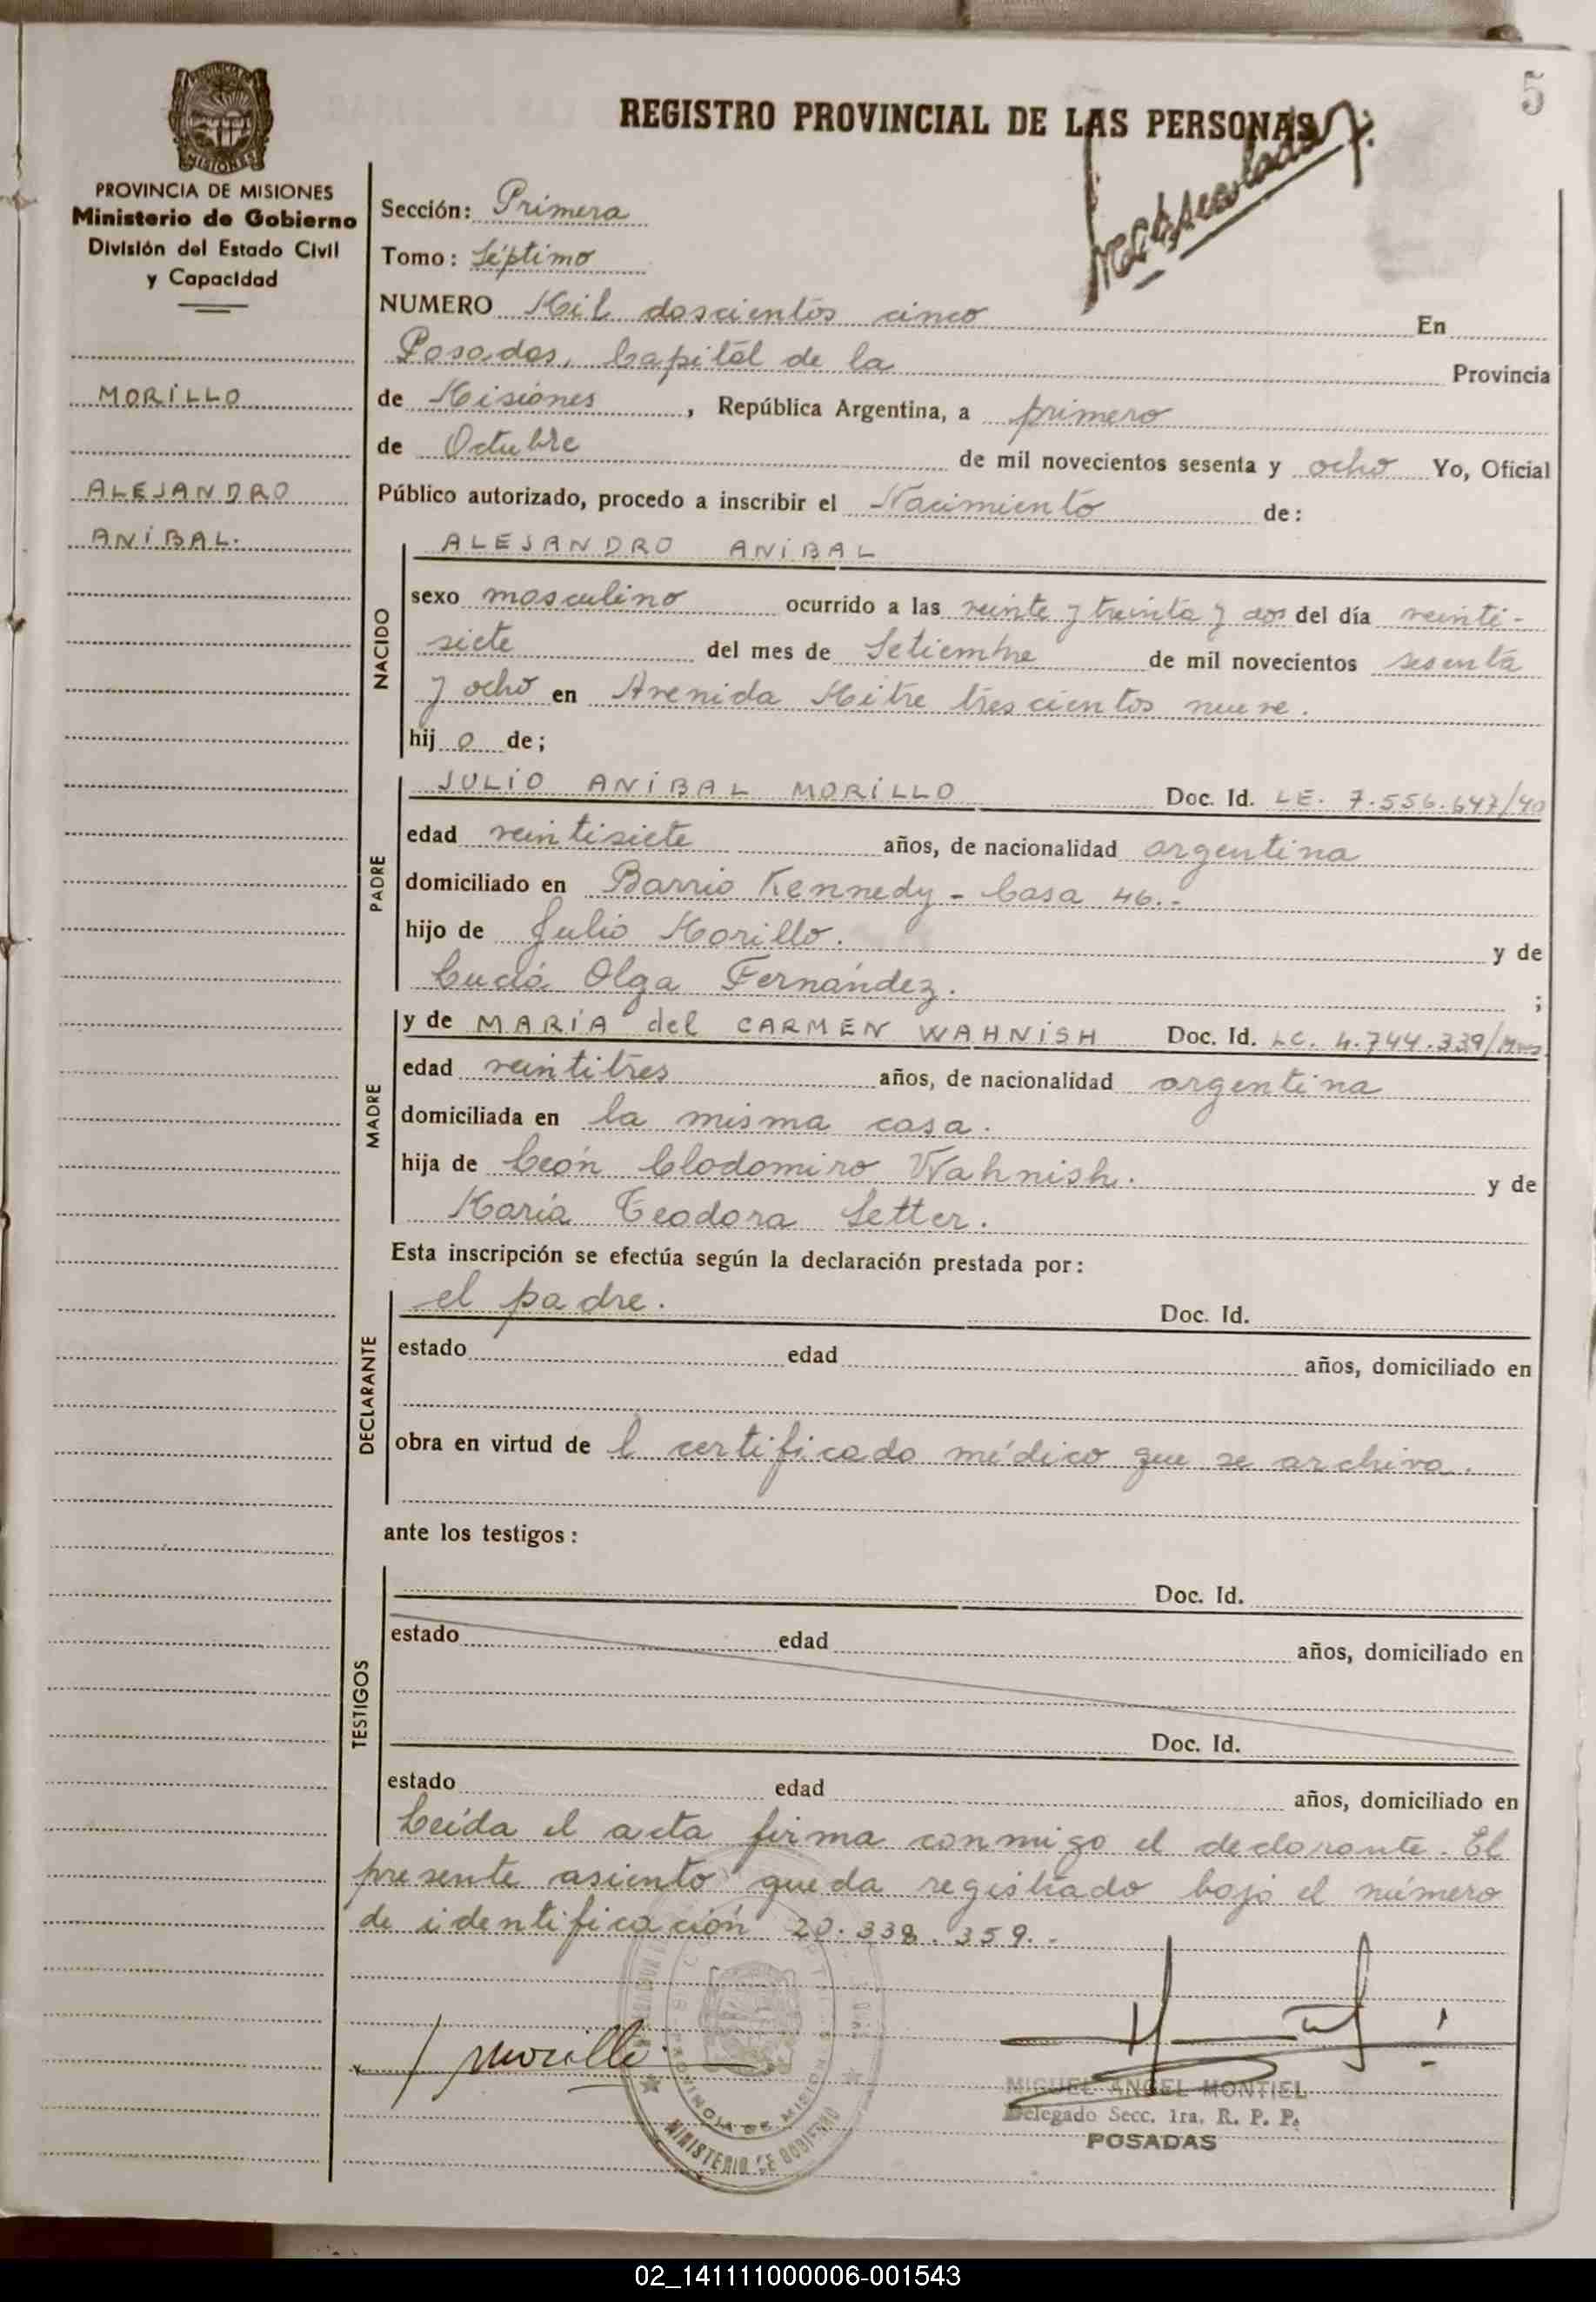 5
REGISTRO PROVINCIAL DE LAS PERSONAS
PROVINCIA DE MISIONES
Ministerio de Gobierno
División del Estado Civil
y Capacidad
MORILLO
ALEJANDRO
ANIBAL.
Sección: Primera
Tomo: Séptimo
NUMERO Mil doscientos cinco En
Posadas, Capital de la Provincia
de Misiones, República Argentina, a primero
de Octubre de mil novecientos sesenta y ocho Yo, Oficial
Público autorizado, procedo a inscribir el Nacimiento de:
NACIDO
ALEJANDRO ANIBAL
sexo masculino ocurrido a las veinte y treinta y dos del día veinti-
siete del mes de Setiembre de mil novecientos sesenta
y ocho en Avenida Mitre trescientos nueve.
hij o de;
PADRE
JULIO ANIBAL MORILLO Doc. Id. LE. 7.556.647/40
edad veintisiete años, de nacionalidad argentina
domiciliado en Barrio Kennedy - Casa 46.-
hijo de Julio Morillo. y de
Lucía Olga Fernández. ;
MADRE
y de MARÍA del CARMEN WAHNISH Doc. Id. LC. 4.744.339/
edad veintitres años, de nacionalidad argentina
domiciliada en la misma casa.
hija de León Clodomiro Wahnish. y de
María Teodora Setter.
Esta inscripción se efectúa según la declaración prestada por:
DECLARANTE
el padre. Doc. Id.
estado edad años, domiciliado en
obra en virtud de l certificado médico que se archiva.
ante los testigos:
TESTIGOS
Doc. Id.
estado edad años, domiciliado en
Doc. Id.
estado edad años, domiciliado en
Leída el acta firma conmigo el declarante. El
presente asiento queda registrado bajo el número
de identificación 20.338.359.-
Morillo
PROVINCIA DE MISIONES
MINISTERIO DE GOBIERNO
MIGUEL ANGEL MONTIEL
Delegado Secc. 1ra. R. P. P.
POSADAS
02_141111000006-001543